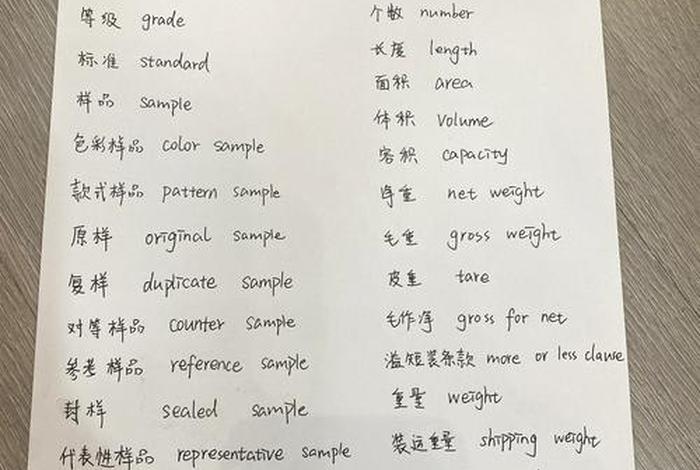 等级 grade
标准 standard
样品 sample
色彩样品 color sample
款式样品 pattern sample
原样 original sample
复样 duplicate sample
对等样品 counter sample
参考样品 reference sample
封样 sealed sample
代表性样品 representative sample
个数 number
长度 length
面积 area
体积 volume
容积 capacity
净重 net weight
毛重 gross weight
皮重 tare
毛作净 gross for net
溢短装条款 more or less clause
重量 weight
装运重量 shipping weight